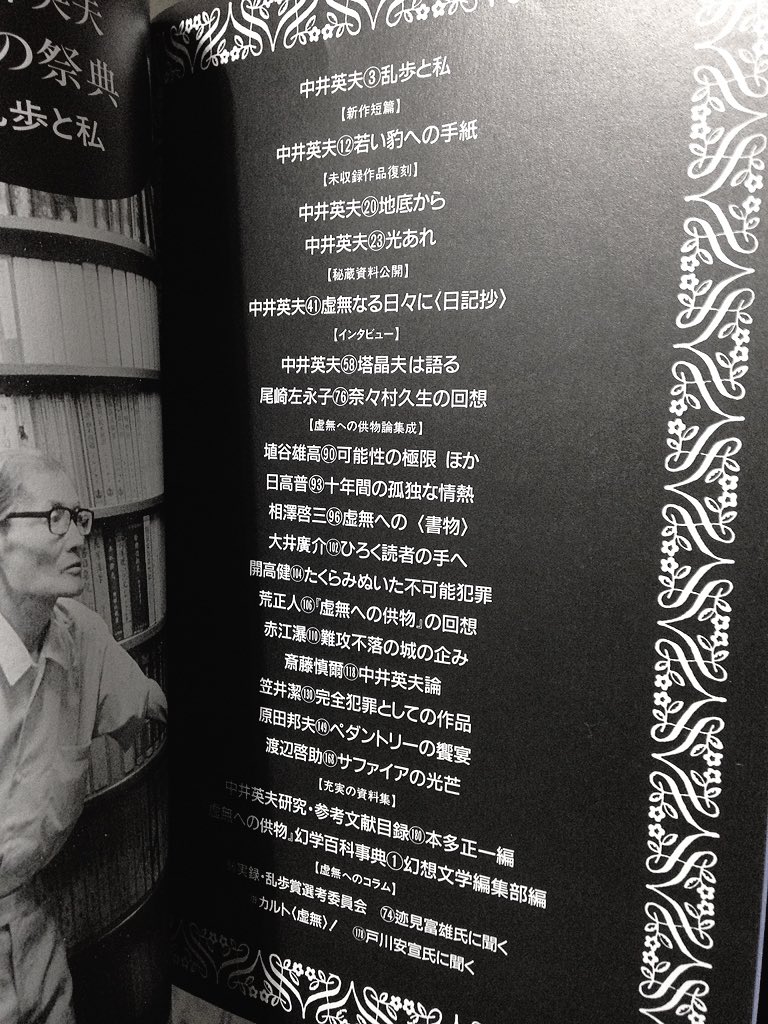 英夫
の祭典
乱歩と私
中井英夫③乱歩と私
【新作短篇】
中井英夫⑫若い豹への手紙
【未収録作品復刻】
中井英夫⑳地底から
中井英夫㉓光あれ
【秘蔵資料公開】
中井英夫㊶虚無なる日々に〈日記抄〉
【インタビュー】
中井英夫58塔晶夫は語る
尾崎左永子76奈々村久生の回想
【虚無への供物論集成】
埴谷雄高90可能性の極限 ほか
日高普93十年間の孤独な情熱
相澤啓三96虚無への〈書物〉
大井廣介102ひろく読者の手へ
開高健104たくらみぬいた不可能犯罪
荒正人106『虚無への供物』の回想
赤江瀑110難攻不落の城の企み
斎藤慎爾118中井英夫論
笠井潔130完全犯罪としての作品
原田邦夫149ペダントリーの饗宴
渡辺啓助168サファイアの光芒
【充実の資料集】
中井英夫研究・参考文献目録180本多正一編
虚無への供物』幻学百科事典①幻想文学編集部編
【虚無へのコラム】
実録・乱歩賞選考委員会 74迹見富雄氏に聞く
カルト〈虚無〉/ 178戸川安宣氏に聞く